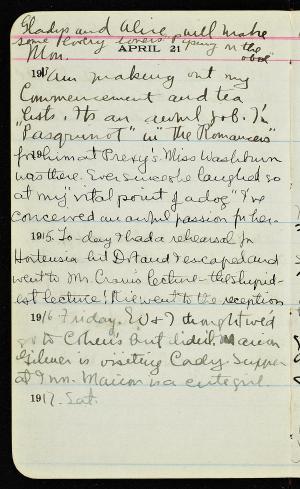 Gladys and Alice will make
some lovely
APRIL 21
Mon.
191 I am making out my
Commencement and tea
lists. Its an awful job. I'm
"Pasquinot" in "The Romancers"
191 at Prexy's. Miss Washburn
was there. Ever since she laughed so
at my "vital point of a dog" I've
conceived an awful passion for her.
1915. To-day I had a rehearsal for
Hortensia but Dot and I escaped and
went to Mr. lecture - the stupid-
est lecture! We went to the reception
1916 Friday. E W & I thought we'd
go to Cohen's but didn't. Marion
Gilmer is visiting Cady. Supper
at Inn. Marion is a cute girl
1917. Sat.